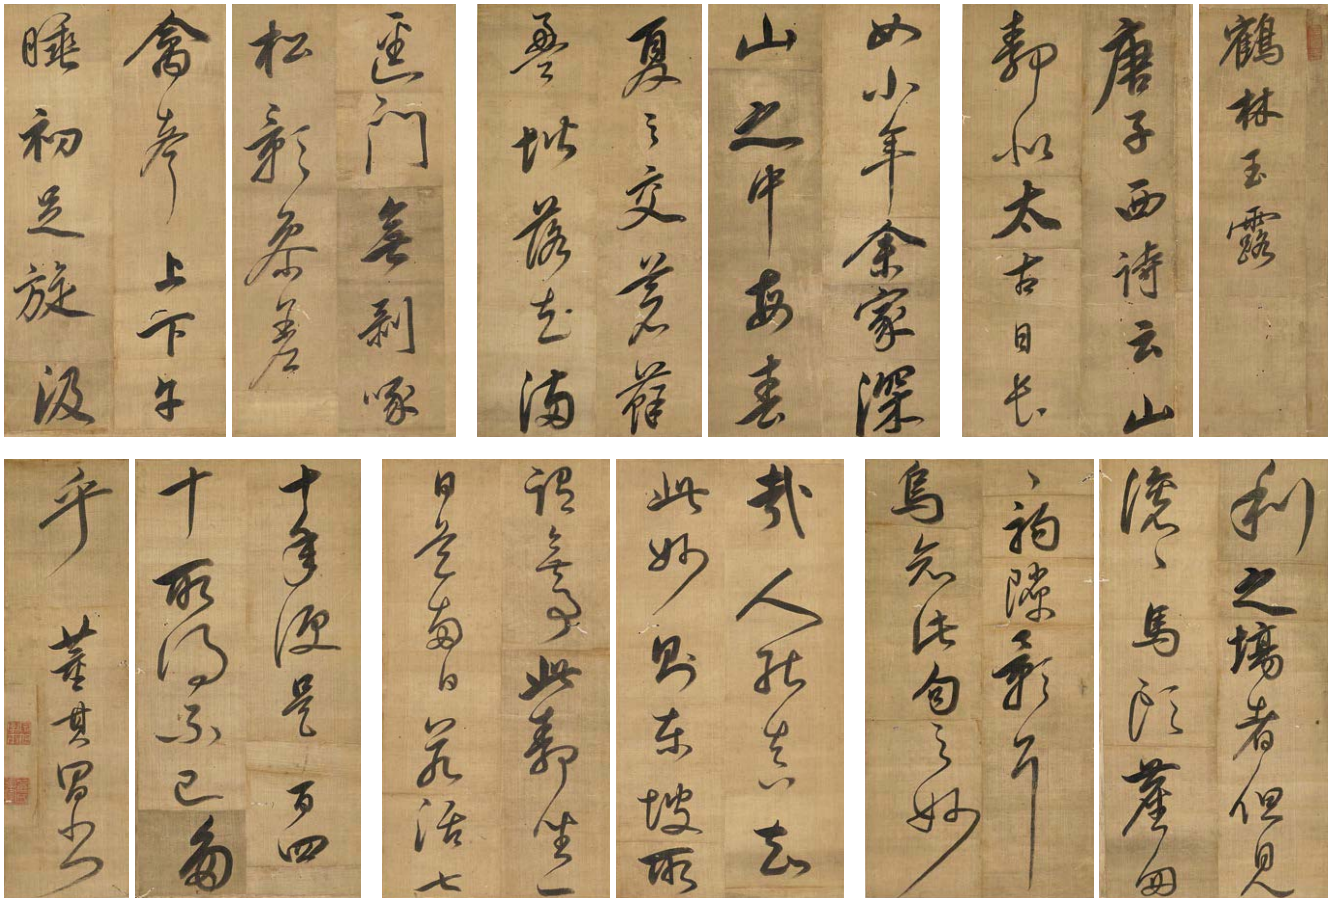 鶴林玉露
唐子西詩云山
靜似太古日長
如小年余家深
山之中每春
夏之交蒼蘚
盈堦落花滿
徑門無剝啄
松影參差
禽聲上下午
睡初足旋汲
利之場者但見
滾〻馬頭塵匆
〻駒隙影耳
烏知此句之妙
哉人能真知
此妙則東坡所
謂無事此靜坐一
日是兩日若活七
十年便是百四
十所得不已多
乎 董其昌書